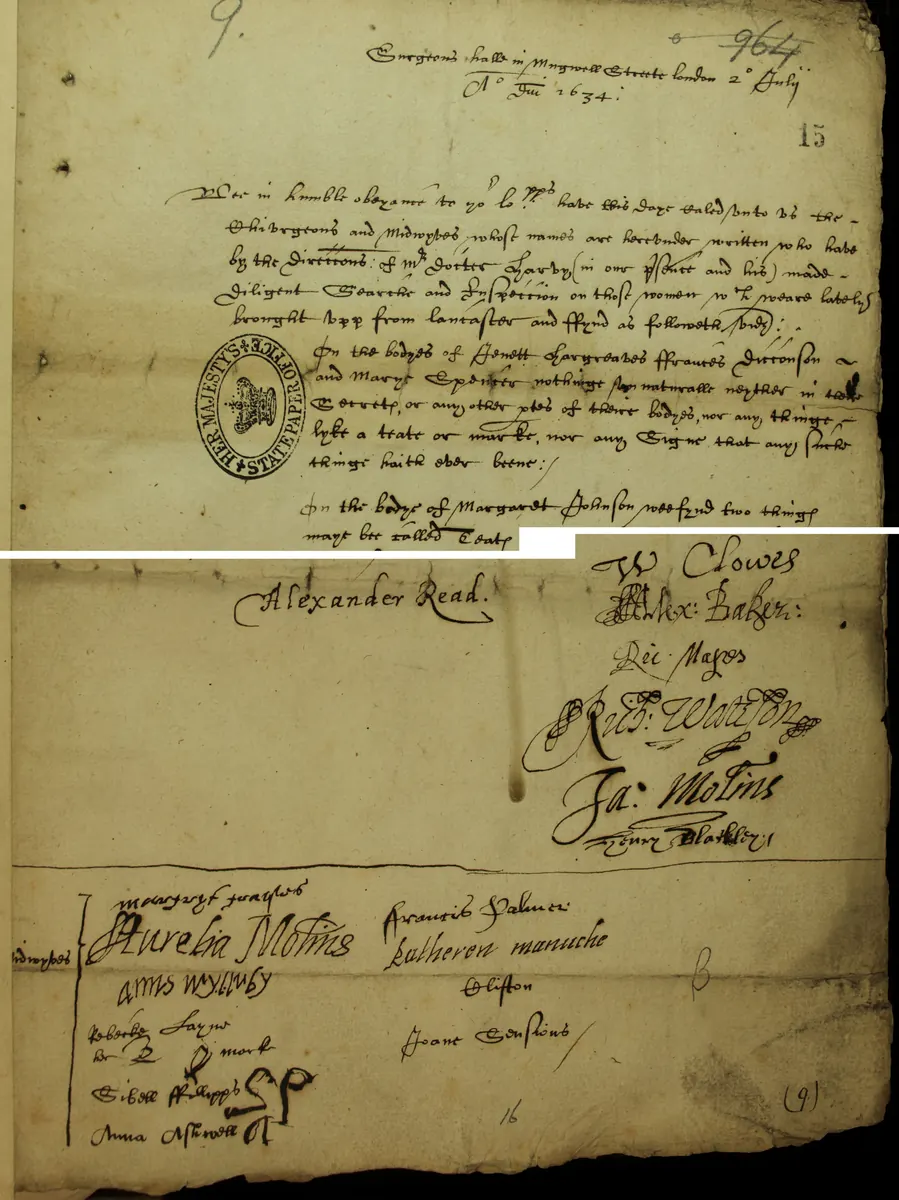 9.
964
Surgeons halle in Mugwell Streete London 2° Julij
A° Dni 1634:
15
Wee in humble obeyance to yor lopps have this daye caled unto us the
Chirurgeons and Midwyves whose names are hereunder written who have
by the direccions: of Mr Docter Harvy (in our psence and his) made
diligent Searche and Inspeccion on those women wch weare latelye
brought upp from Lancaster and ffynd as followeth, vidz:
HER MAJESTY'S STATE PAPER OFFICE
On the bodyes of Jenett Hargreaves ffrances Dicconson
and Marye Spencer nothinge unnaturalle neyther in theire
Secrets, or any other ptes of theire bodyes, nor any thinge
lyke a teate or marke, nor any Signe that any suche
thinge haith ever beene:/
On the bodye of Margaret Johnson wee fynd two things
maye bee called Teats
Alexander Read.
W Clowes
Alex: Baker:
Ric. Mapes
Rich: Wattson
Ja: Molins
Henry Blackley
midwyves
Aurelia Molins
anns wylluby
Rebecke Layne
her 2 mark
Sibell ffillipps SP
Anna Ashwell A
Francis Palmer
katheren manuche
Clifton
Joane Sensions /
B
16
(9)